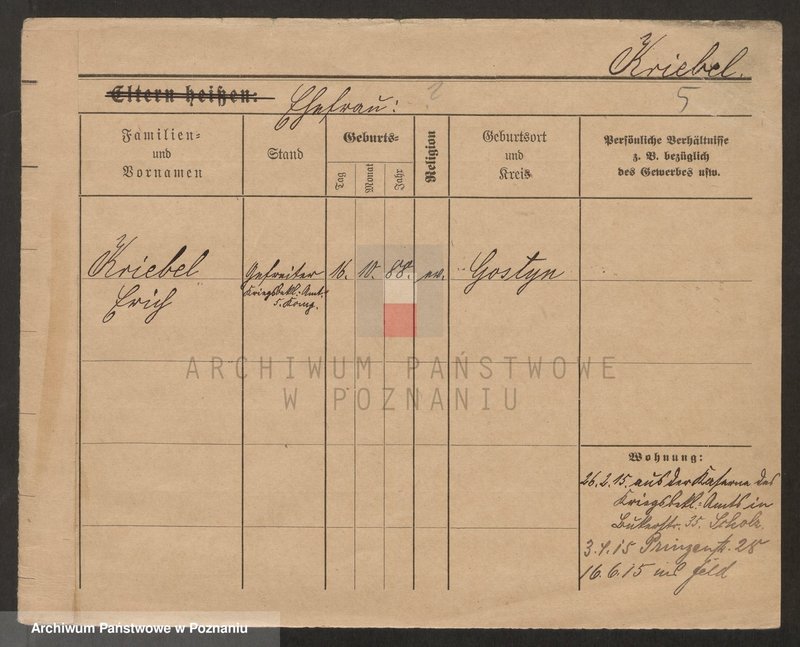 Kriebel.
5
Eltern heißen:
Ehefrau: ?
Familien=
und
Vornamen
Stand
Geburts=
Tag
Monat
Jahr
Religion
Geburtsort
und
Kreis
Persönliche Verhältnisse
z. B. bezüglich
des Gewerbes usw.
Kriebel
Erich
Gefreiter
Kriegsbekl.-Amt.
5. Komp.
16.
10.
88.
ev.
Gostyn
ARCHIWUM PAŃSTWOWE
W POZNANIU
Wohnung:
26.2.15. aus der Kaserne des
Kriegsbekl.-Amts in
Bukerstr. 35. Scholz
3.4.15 Prinzenstr. 28
16.6.15 ins Feld
Archiwum Państwowe w Poznaniu